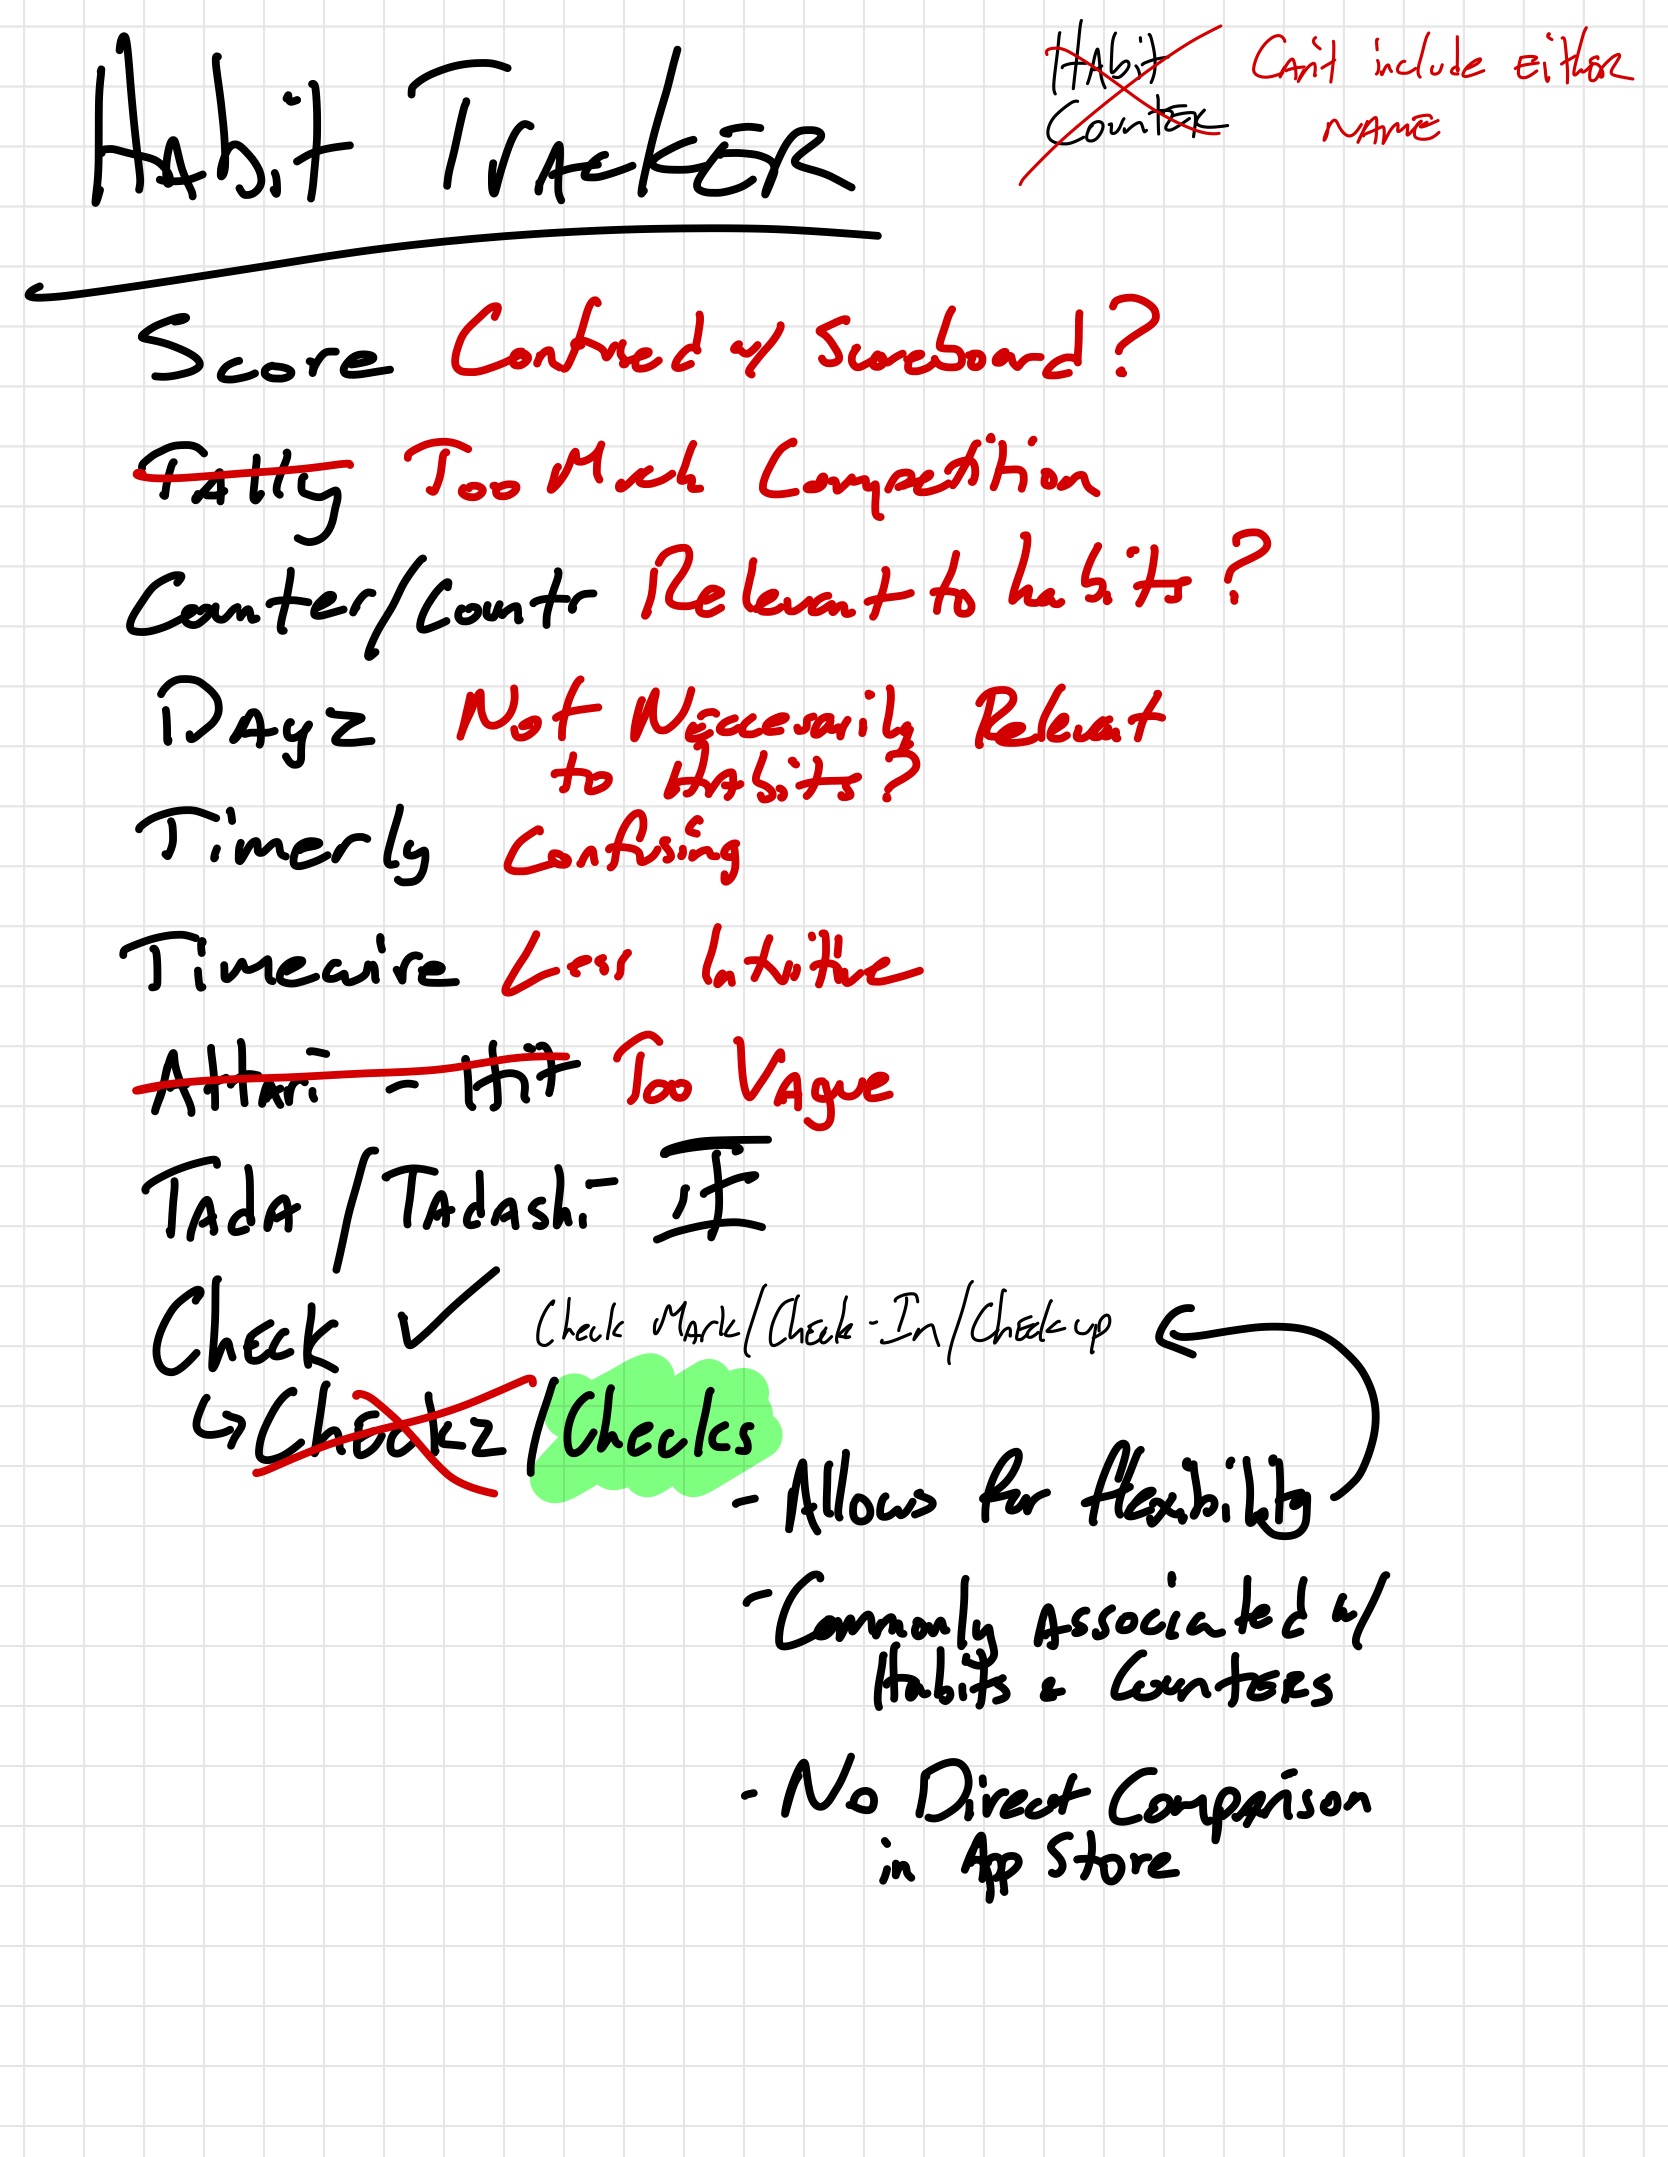 Habit Tracker
Habit Can't include either
Counter name
Score Confused w/ Scoreboard?
Tally Too Much Competition
Counter/Countr Relevant to habits?
Dayz Not Neccesarily Relevant
to Habits?
Timerly Confusing
Timewire Less Intuitive
Attari - Hit Too Vague
Tada/Tadashi - 正
Check ✓ Check Mark/Check-In/Checkup
↳ Checkz/Checks
- Allows for flexibility
- Commonly Associated w/
Habits & Counters
- No Direct Comparison
in App Store